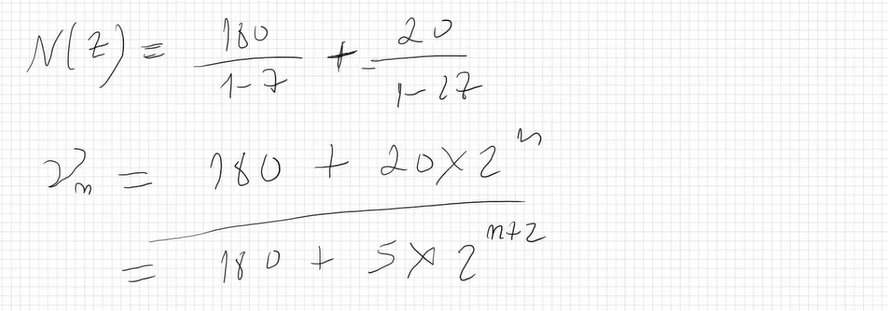 N(z) = 180/(1-z) + 20/(1-2z)
ν_n = 180 + 20×2^n
= 180 + 5×2^{n+2}